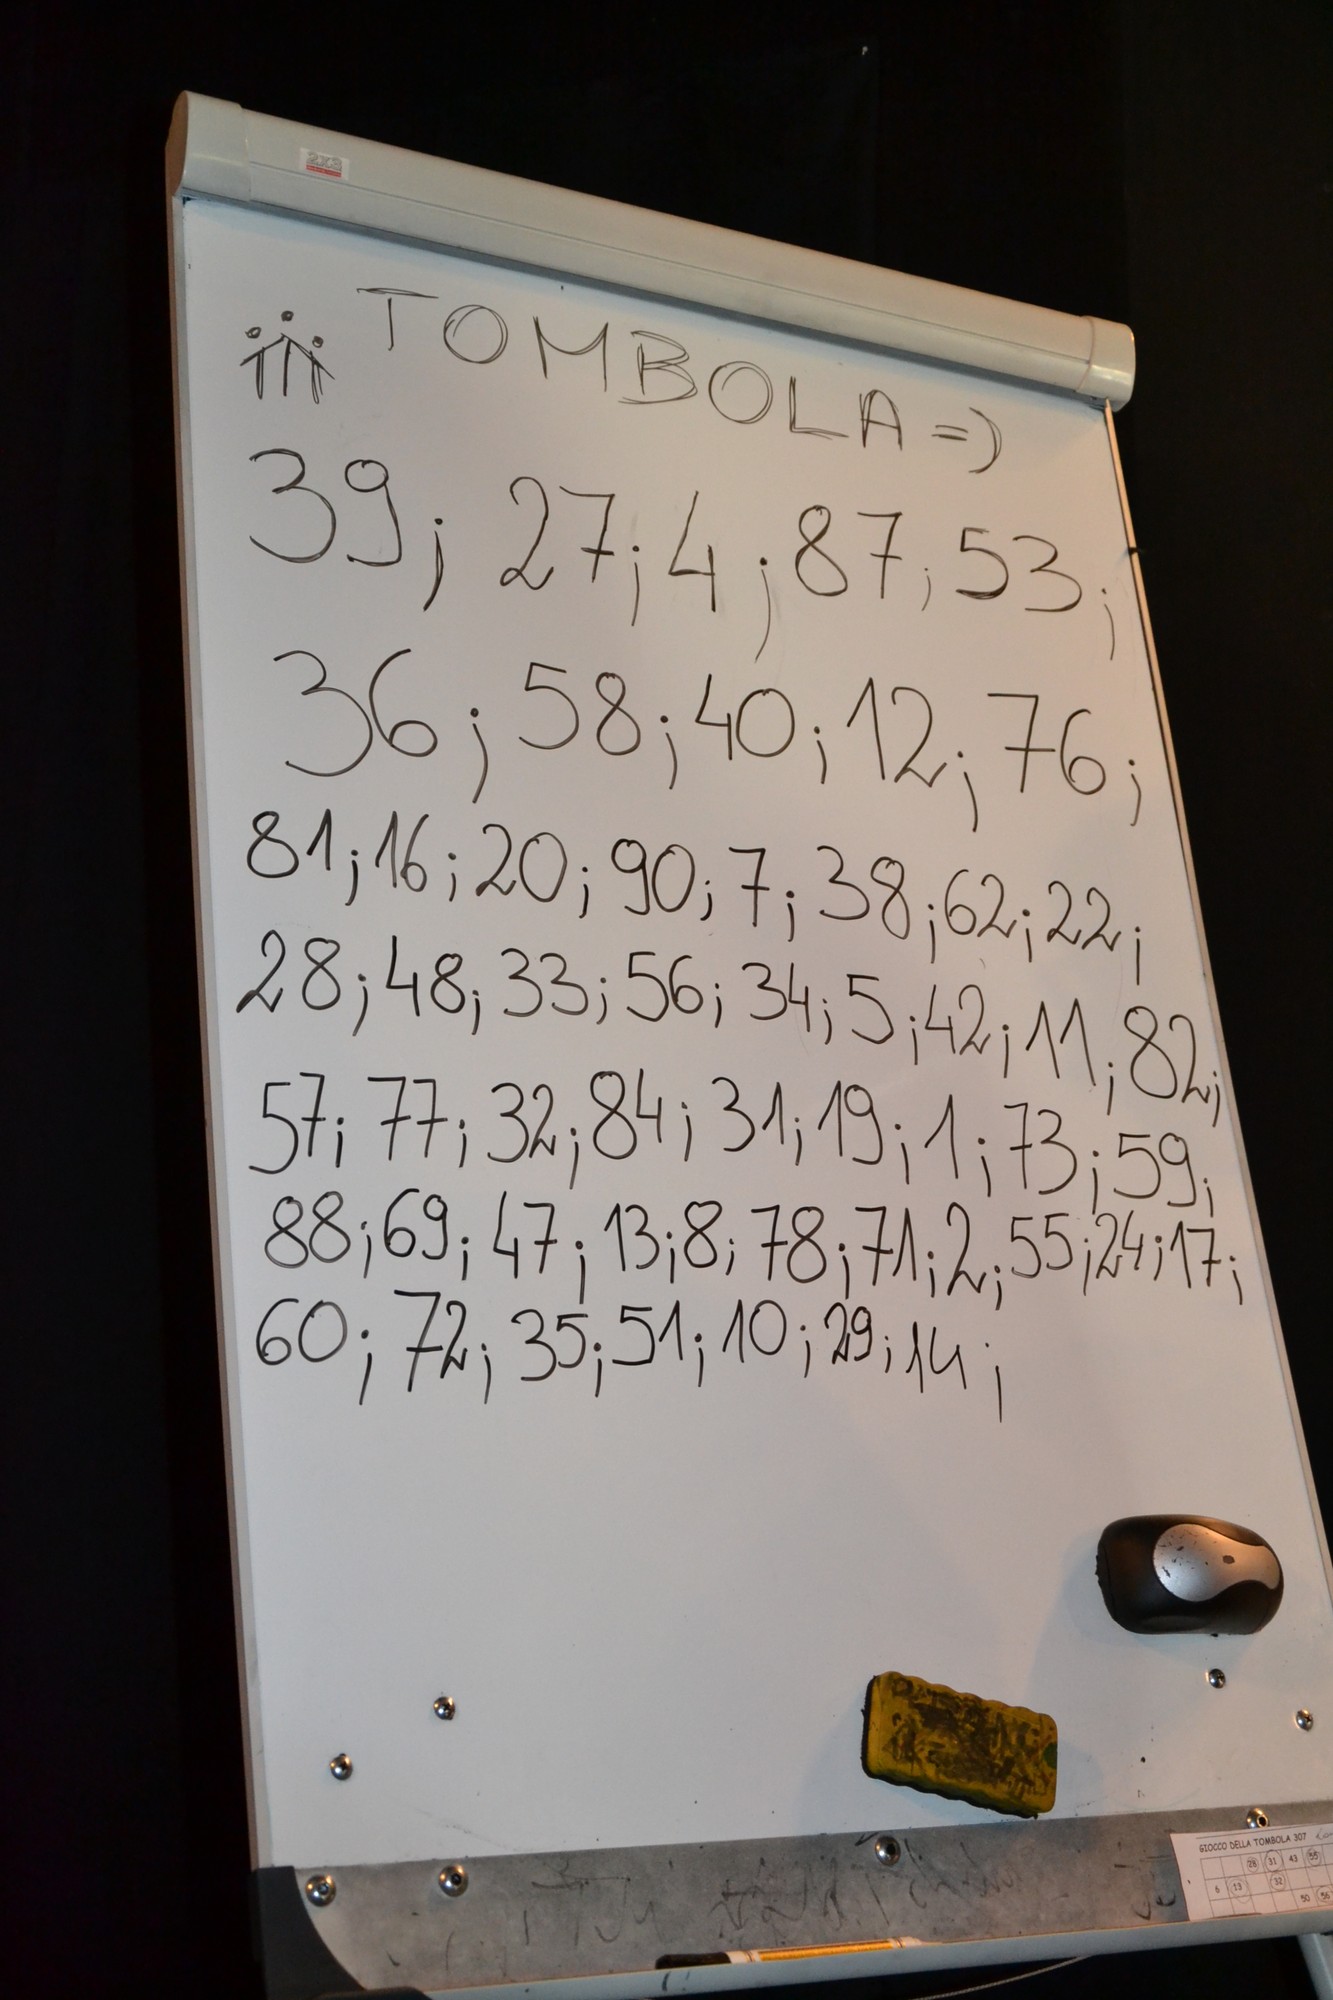 2X3
TOMBOLA =)
39; 27; 4; 87; 53;
36; 58; 40; 12; 76;
81; 16; 20; 90; 7; 38; 62; 22;
28; 48; 33; 56; 34; 5; 42; 11; 82;
57; 77; 32; 84; 31; 19; 1; 73; 59;
88; 69; 47; 13; 8; 78; 71; 2; 55; 24; 17;
60; 72; 35; 51; 10; 29; 14;
GIOCCO DELLA TOMBOLA 307
28 31 43 55
6 13 32
50 56